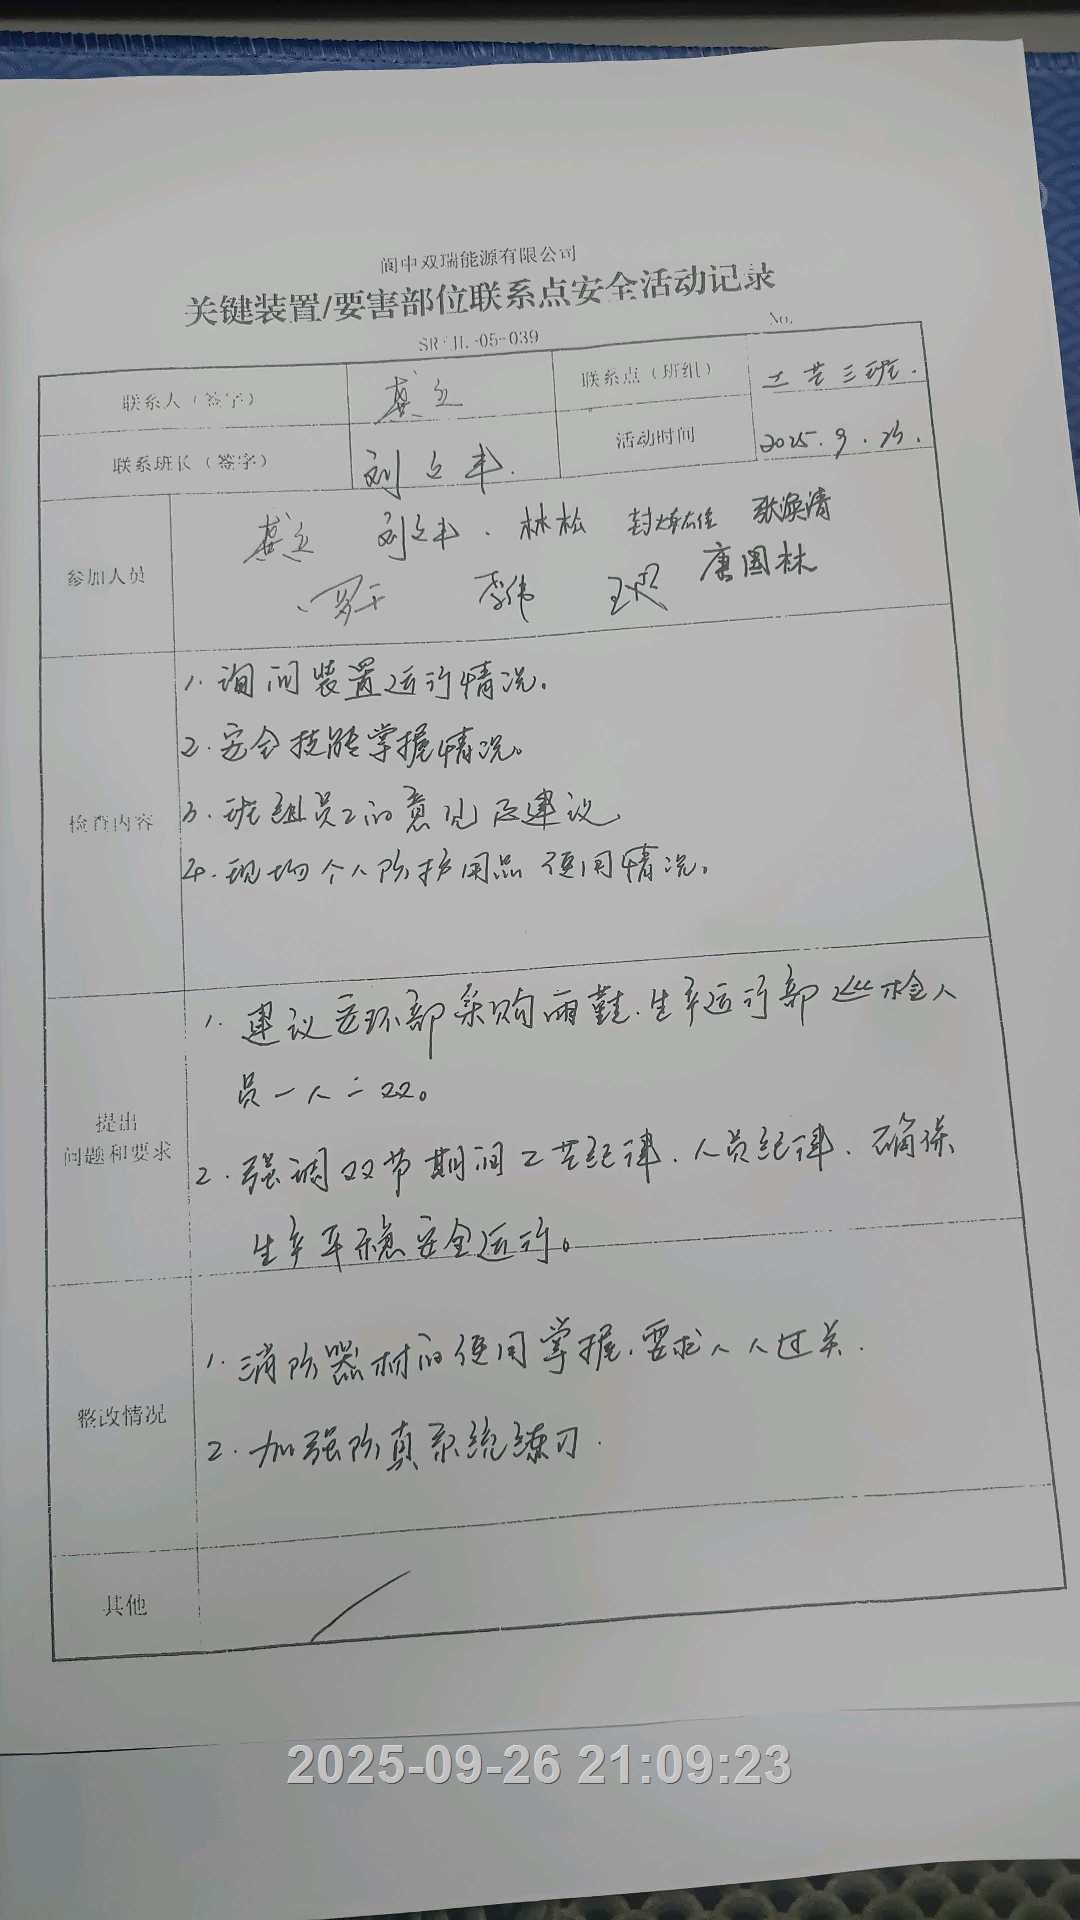 阆中双瑞能源有限公司
关键装置/要害部位联系点安全活动记录
SR·JL-05-039
No.
联系人（签字）
联系点（班组） 工艺三班.
联系班长（签字） 刘立丰.
活动时间 2025.9.
参加人员
刘立丰. 林松
李伟 唐国林
检查内容
1. 询问装置运行情况。
2. 安全技能掌握情况。
3. 班组员工的意见及建议
4. 现场个人防护用品使用情况。
提出
问题和要求
1. 建议安环部采购雨鞋.生产运行部巡检人
员一人一双。
2. 强调双节期间工艺纪律.人员纪律.确保
生产平稳安全运行。
整改情况
1. 消防器材的使用掌握.要求人人过关.
2. 加强仿真系统练习.
其他
2025-09-26 21:09:23